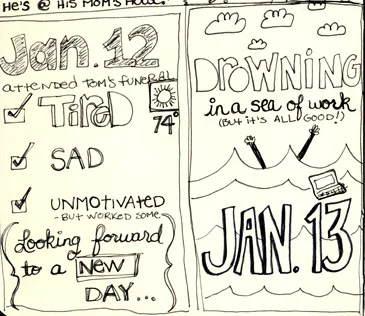 He's @ His Mom's House.
Jan. 12
attended Tom's Funeral
Tired
74°
SAD
UNMOTIVATED
- BUT WORKED SOME
Looking forward
to a New
DAY...
DROWNING
in a sea of work
(BUT IT'S ALL GOOD!)
JAN. 13